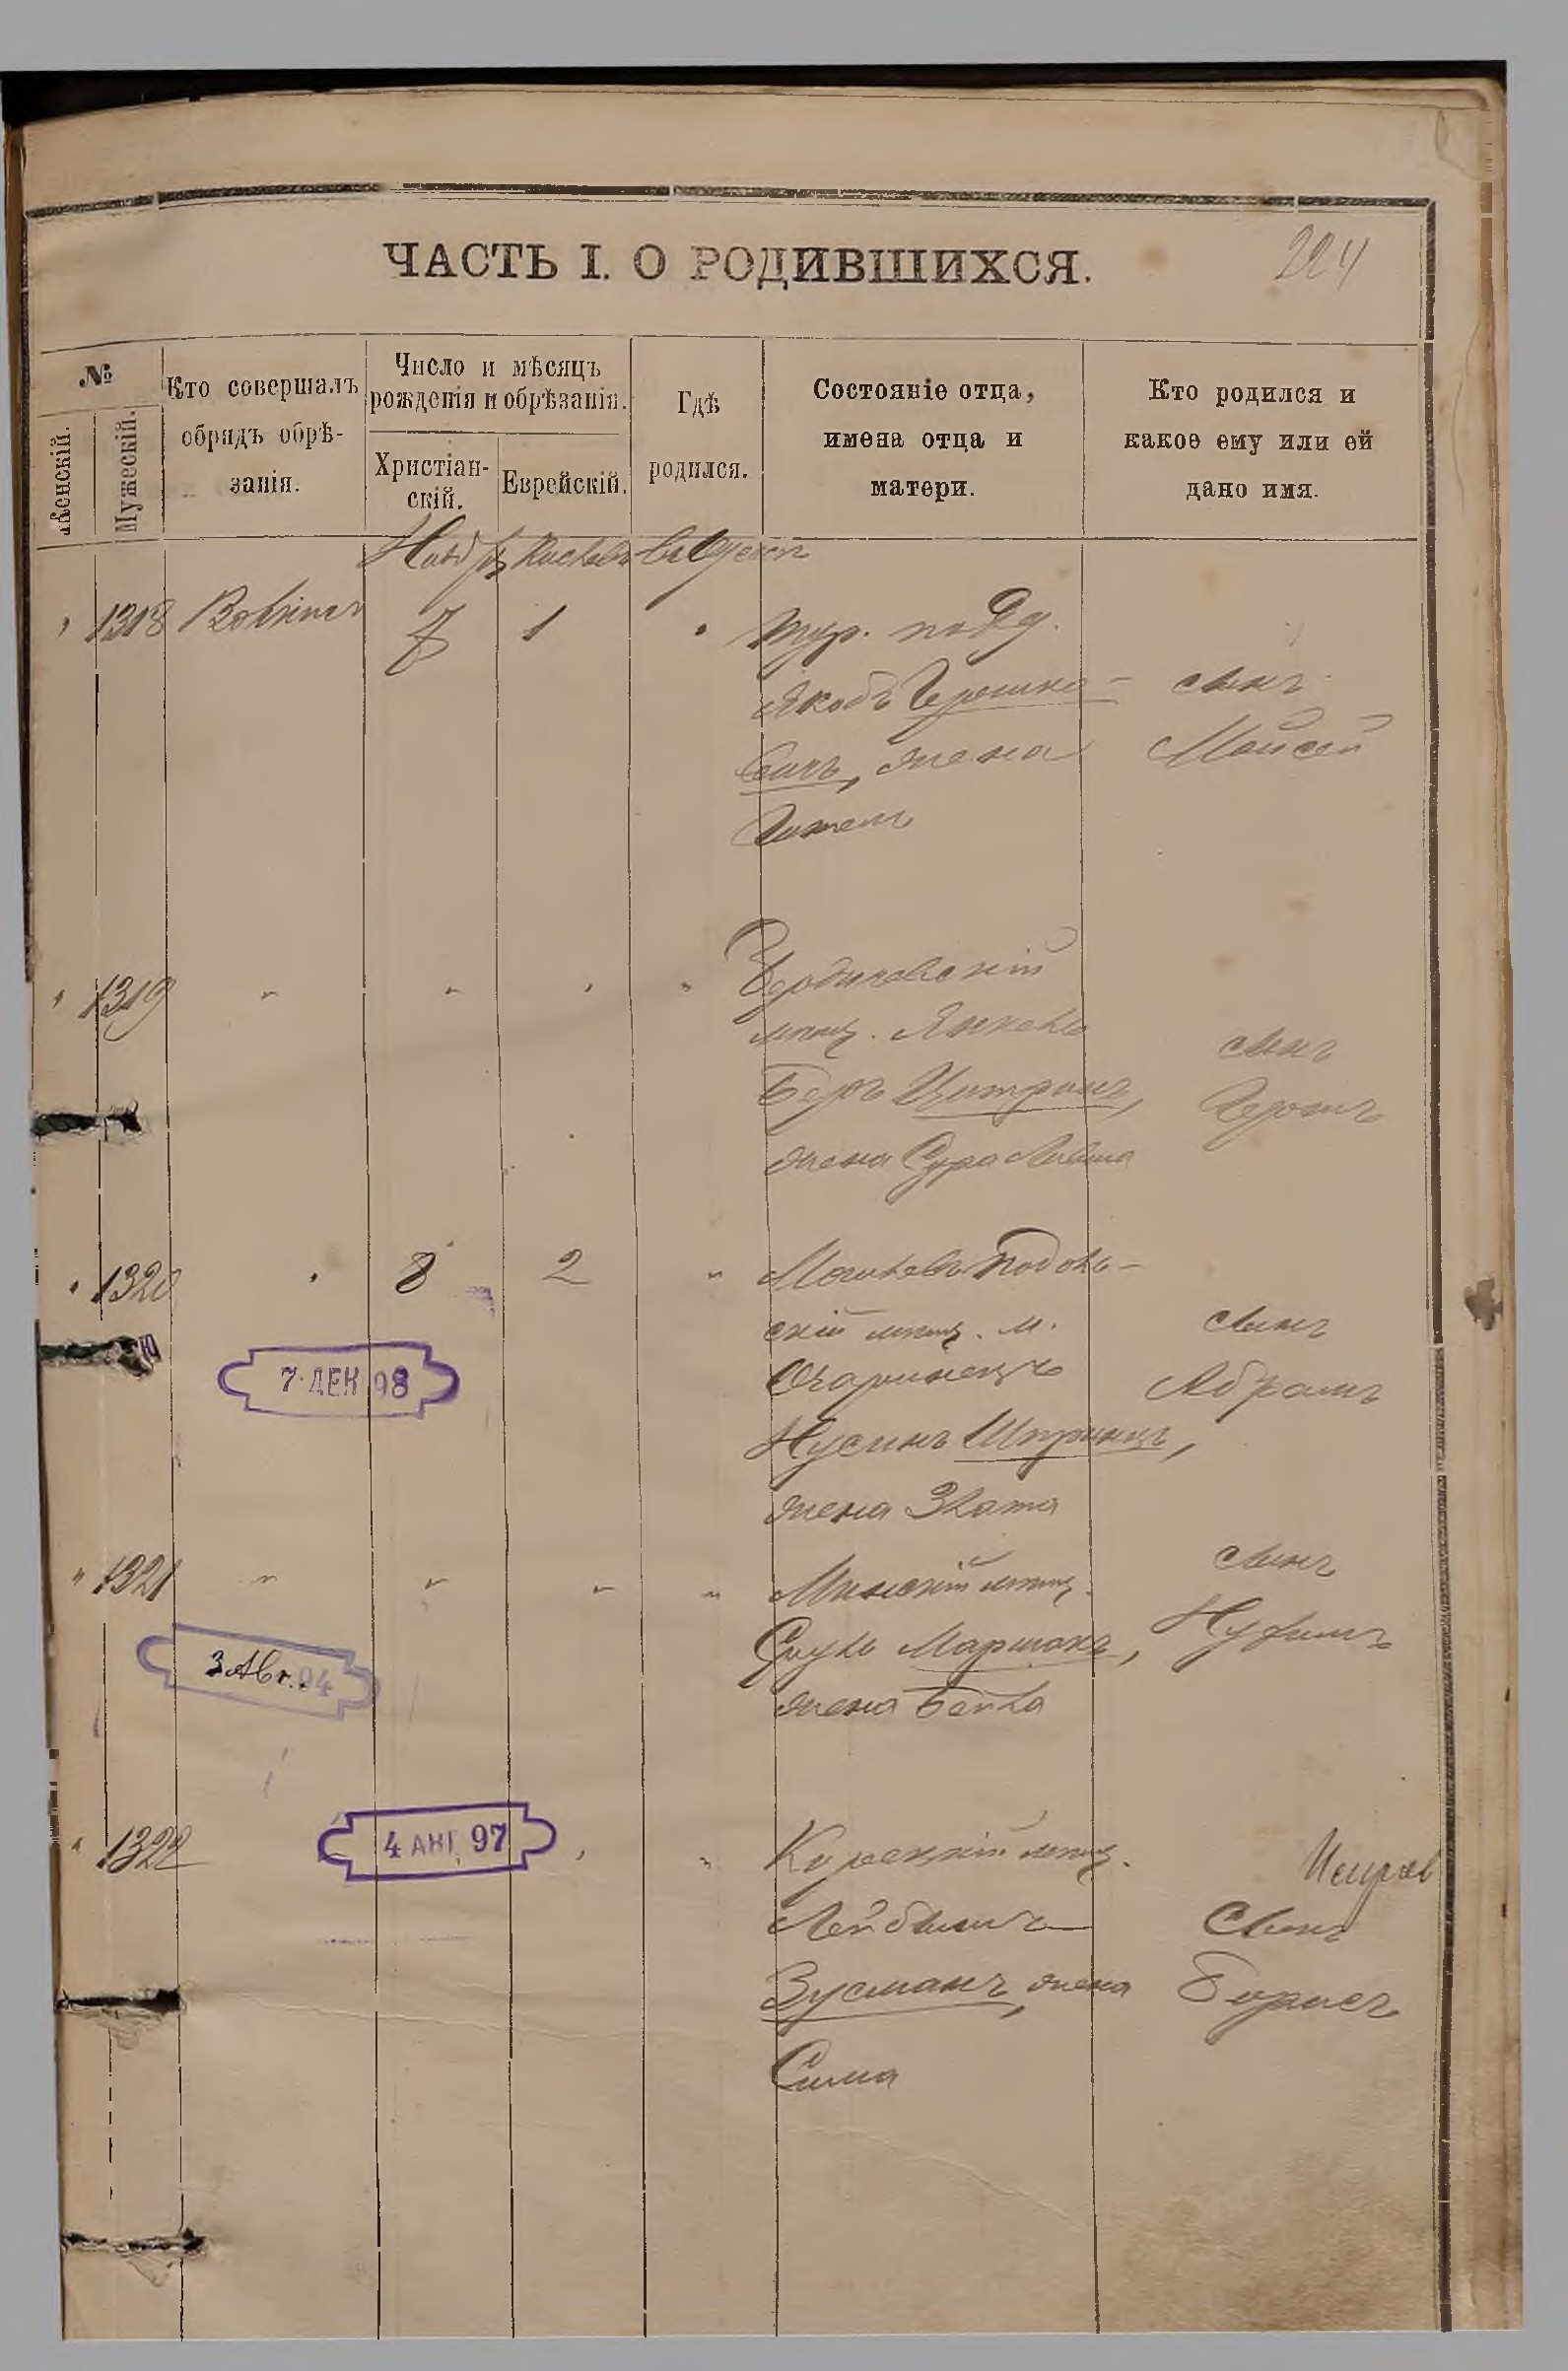 ЧАСТЬ I. О РОДИВШИХСЯ.
224
№
Женскій.
Мужескій.
Кто совершалъ
обрядъ обрѣ-
занія.
Число и мѣсяцъ
рожденія и обрѣзанія.
Христіан-
скій.
Еврейскій.
Гдѣ
родился.
Состояніе отца,
имена отца и
матери.
Кто родился и
какое ему или ей
дано имя.
1318 1 Тур. подд.
Якобъ Гершко-
вичъ, жена
сынъ
Мойсей
1319 Бердичевскій
мѣщ. Янкель
Беръ Цитринъ,
жена Сура
сынъ
Гершъ
1320 8 2 Могилевъ Подоль-
скій мѣщ. м.
Озаринецъ
Нусинъ Шпринцъ,
жена Злата
сынъ
Абрамъ
7 ДЕК 98
1321 Минскій мѣщ.
Маршакъ,
жена Бейла
сынъ
Нухимъ
3 Авг. 94
1322 Корецкій мѣщ.
Лейбишъ
Зусманъ, жена
Сима
Сынъ
Борисъ
4 АВГ 97